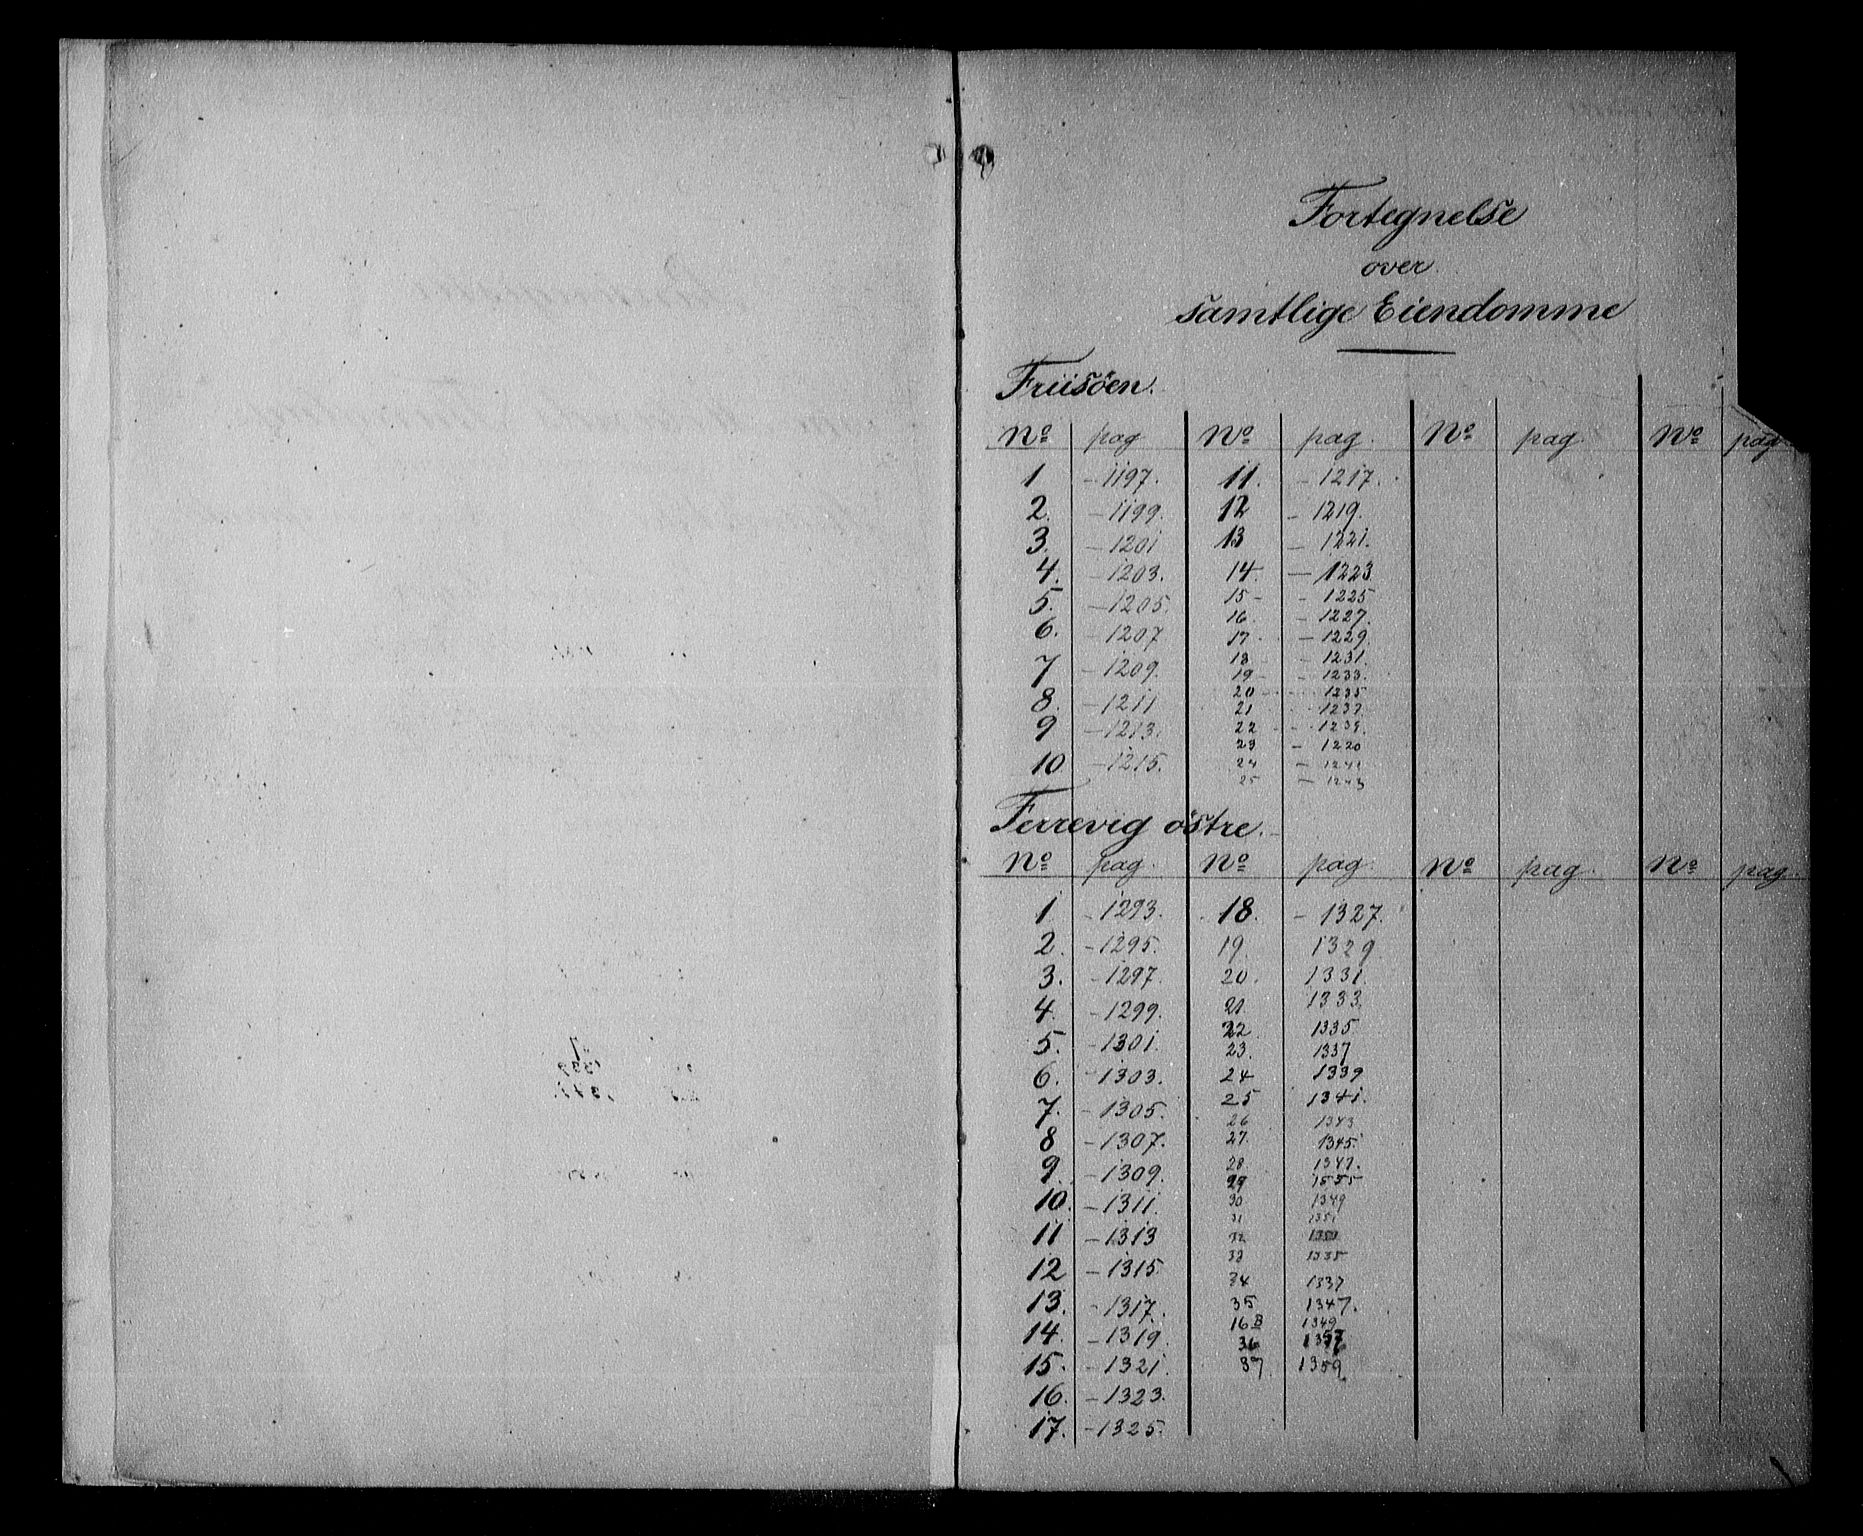 Fortegnelse
over
samtlige Eiendomme
Friisöen.
No pag No pag. No pag. No pag
1 - 1197. 11. - 1217.
2. - 1199. 12 - 1219.
3. - 1201 13 - 1221.
4. - 1203. 14. - 1223
5. - 1205. 15 - - 1225
6. - 1207 16. - 1227.
7 - 1209. 17. - 1229.
8. - 1211 18 - 1231.
9 - 1213. 19 - - 1233.
10 - 1215. 20 - - 1235
21 - 1237.
22 - - 1239.
23 - 1220
24 - 1241
25 - 1243
Ferrevig östre.
No pag. No pag. No pag. No pag.
1. - 1293. 18. - 1327.
2. - 1295. 19. 1329
3. - 1297. 20. 1331.
4. - 1299. 21. 1333
5. - 1301. 22. 1335
6. - 1303. 23. 1337
7. - 1305. 24 1339
8 - 1307. 25 1341.
9. - 1309. 26 1343
10. - 1311. 27. 1345.
11 - 1313 28. 1347.
12 - 1315 29
13. - 1317. 30 1349
14. - 1319. 31 1351
15. - 1321. 32
16. - 1323. 33 1335
17. - 1325. 34 1337
35 1347.
16 B 1349
36 1357
37 1359